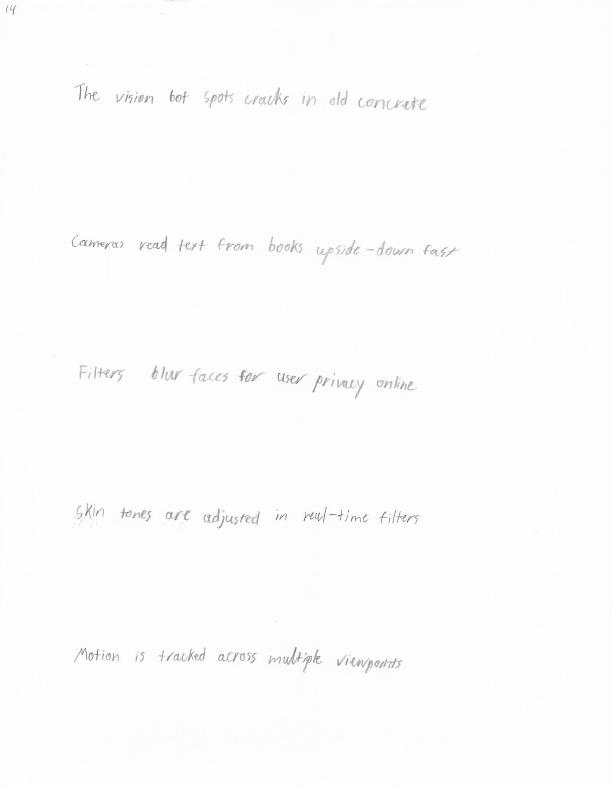 14
The vision bot spots cracks in old concrete
Cameras read text from books upside-down fast
Filters blur faces for user privacy online
Skin tones are adjusted in real-time filters
Motion is tracked across multiple viewpoints